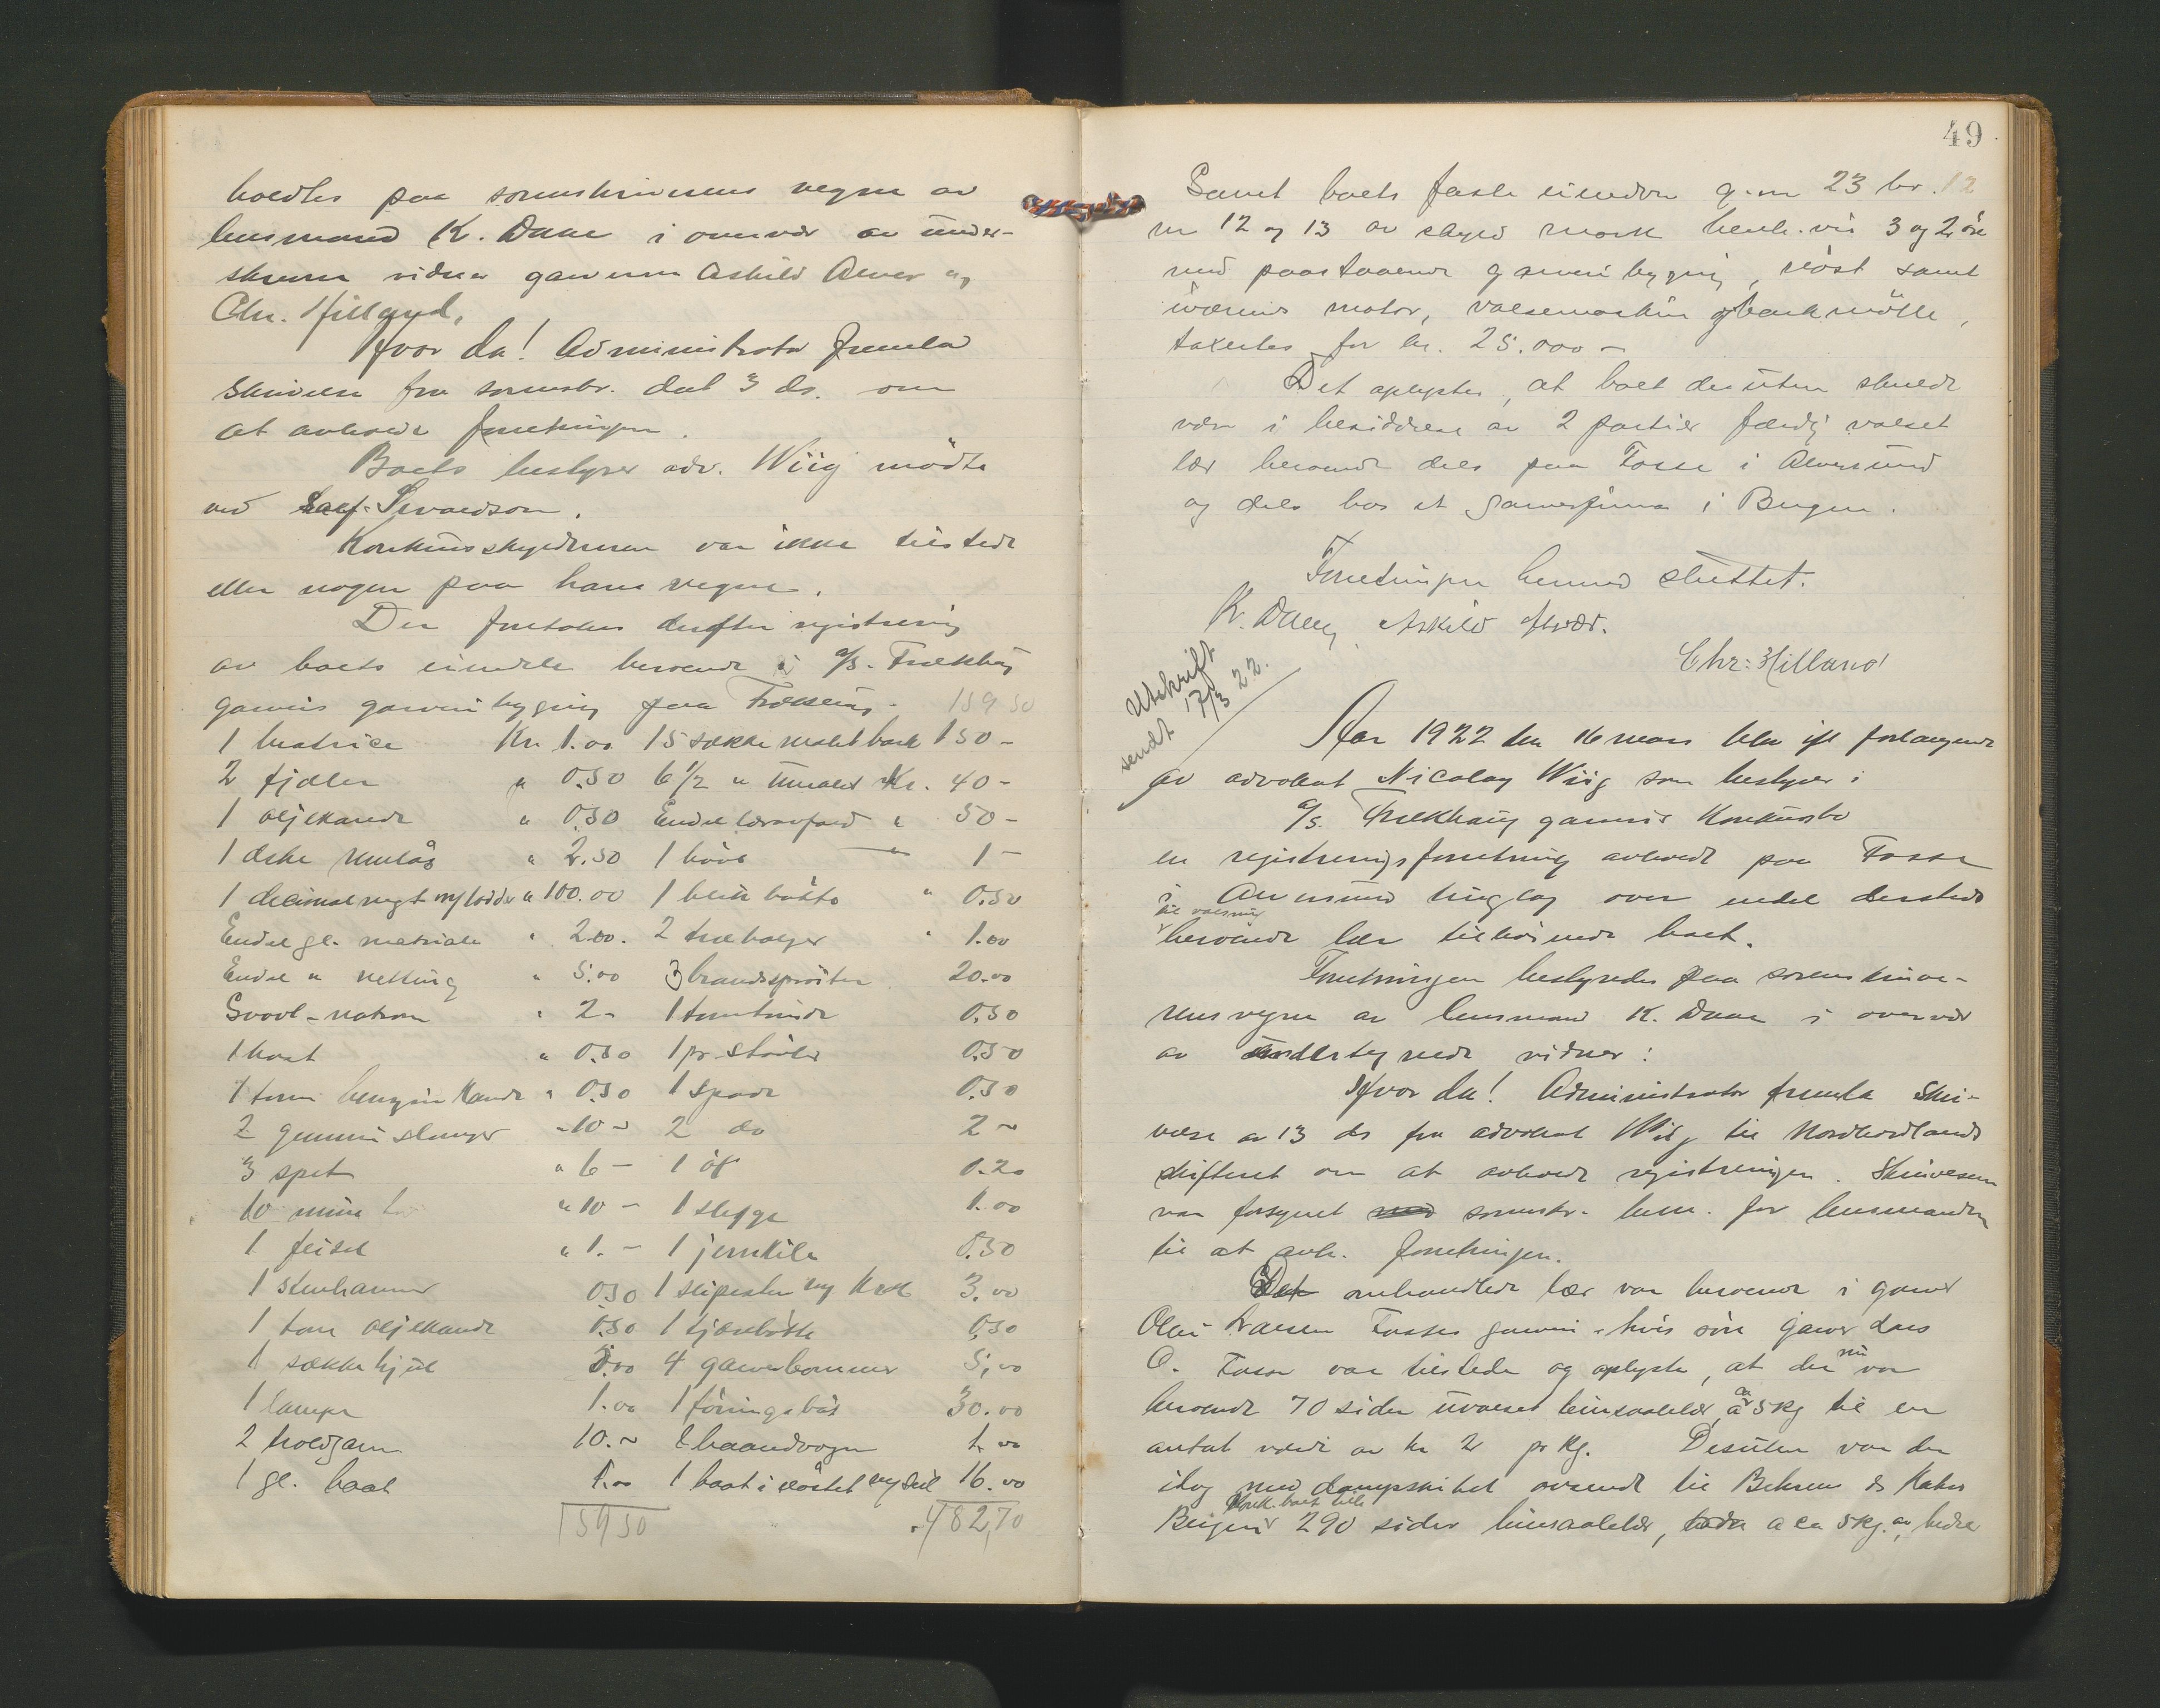 holdtes paa sorenskriverens vegne av
lensmand K. Daae i overvær av under-
skrevne vidner garverne Askild Alver og
Chr. Hilland.
Hvor da! Administrator fremla
skrivelse fra sorenskr. dat 3 ds. om
at avholde forretningen.
Boets bestyrer adv. Wiig mødte
ved Sivaldson.
Konkursskyldneren var ikke tilstede
eller nogen paa hans vegne.
Der foretokes derefter registrering
av boets eiendele beroende i a/s. Frekhaug
garveris garveribygning paa Frekhaug. 159 50
1 matrice Kr. 1.00 15 sække malet bark 150 -
2 fjæler " 0.50 6 1/2 " umalet Kr. 40 -
1 oljekande " 0.50 Endel læravfald " 50 -
1 " 2.50 1 " 1 -
1 decimalvegt m/lodder " 100.00 1 blik bøtte " 0.50
Endel gl. materiale " 2.00. 2 træbalger " 1.00
Endel " netting " 5.00 3 brandsprøiter 20.00
Svovl-natron " 2 - 1 tomtønde 0.50
1 " 0.50 1 pr. støvler 0.50
1 tom benzinkande " 0.50 1 spade 0.50
2 gummislanger " 10 - 2 do 2 -
3 spet " 6 - 1 0.20
10 " 10 - 1 slegge 1.00
1 feisel " 1. - 1 jernkile 0.50
1 stenhammer 0.50 1 slipesten m/ 3.00
1 tom oljekande 0.50 1 tjærebøtte 0.50
1 sækkehjul 5.00 4 garverbommer 5,00
1 lampe 1.00 1 føringsbåt 30.00
2 10. - 1 haandvogn 1.00
1 gl. baat 1.00 1 baat i nøstet m/seil 16.00
159 50 482,70
49
Samt boets faste eiendom g.nr 23 br. 12
nr 12 og 13 av skyld mark henh.vis 3 og 2 øre
med paastaaende garveribygning, nøst samt
iværende motor, valsemaskin og barkmølle,
taxertes for kr. 25.000 -
Det oplystes, at boet desuten skulde
være i besiddelse av 2 partier færdig valset
lær beroende dels paa Fosse i Alversund
og dels hos et garverfirma i Bergen.
Forretningen hermed sluttet.
K. Daae Askild Alver.
Chr: Hilland
Utskrift
sendt 17/3 22.
Aar 1922 den 16 mars blev ift forlangende
av advokat Nicolay Wiig som bestyrer i
a/s. Frekhaug garveris Konkursbo
en registreringsforretning avholdt paa Fosse
i Alversund tinglag over endel dersteds
til valsning
beroende lær tilhørende boet.
Forretningen bestyredes paa sorenskrive-
rens vegne av lensmand K. Daae i overvær
av undertegnede vidner:
Hvor da! Administrator fremla skri-
velse av 13 ds fra advokat Wiig til Nordhordlands
skifteret om at avholde registreringen. Skrivelsen
var forsynet med sorenskr. bem. for lensmanden
til at avh. forretningen.
Det omhandlede lær var beroende i garver
Olai Larsen Fosses garveri - hvis søn garver Lars
O. Fosse var tilstede og oplyste, at der nu var
beroende 70 sider uvalset binsaalelær, à ca 5 kg til en
antat værdi av kr 2 pr kg. Desuten var der
idag med dampskibet avsendt til Behrens & Kahrs
Konk. boet
Bergen 290 sider binsaalelær, à ca 5 kg. av bedre